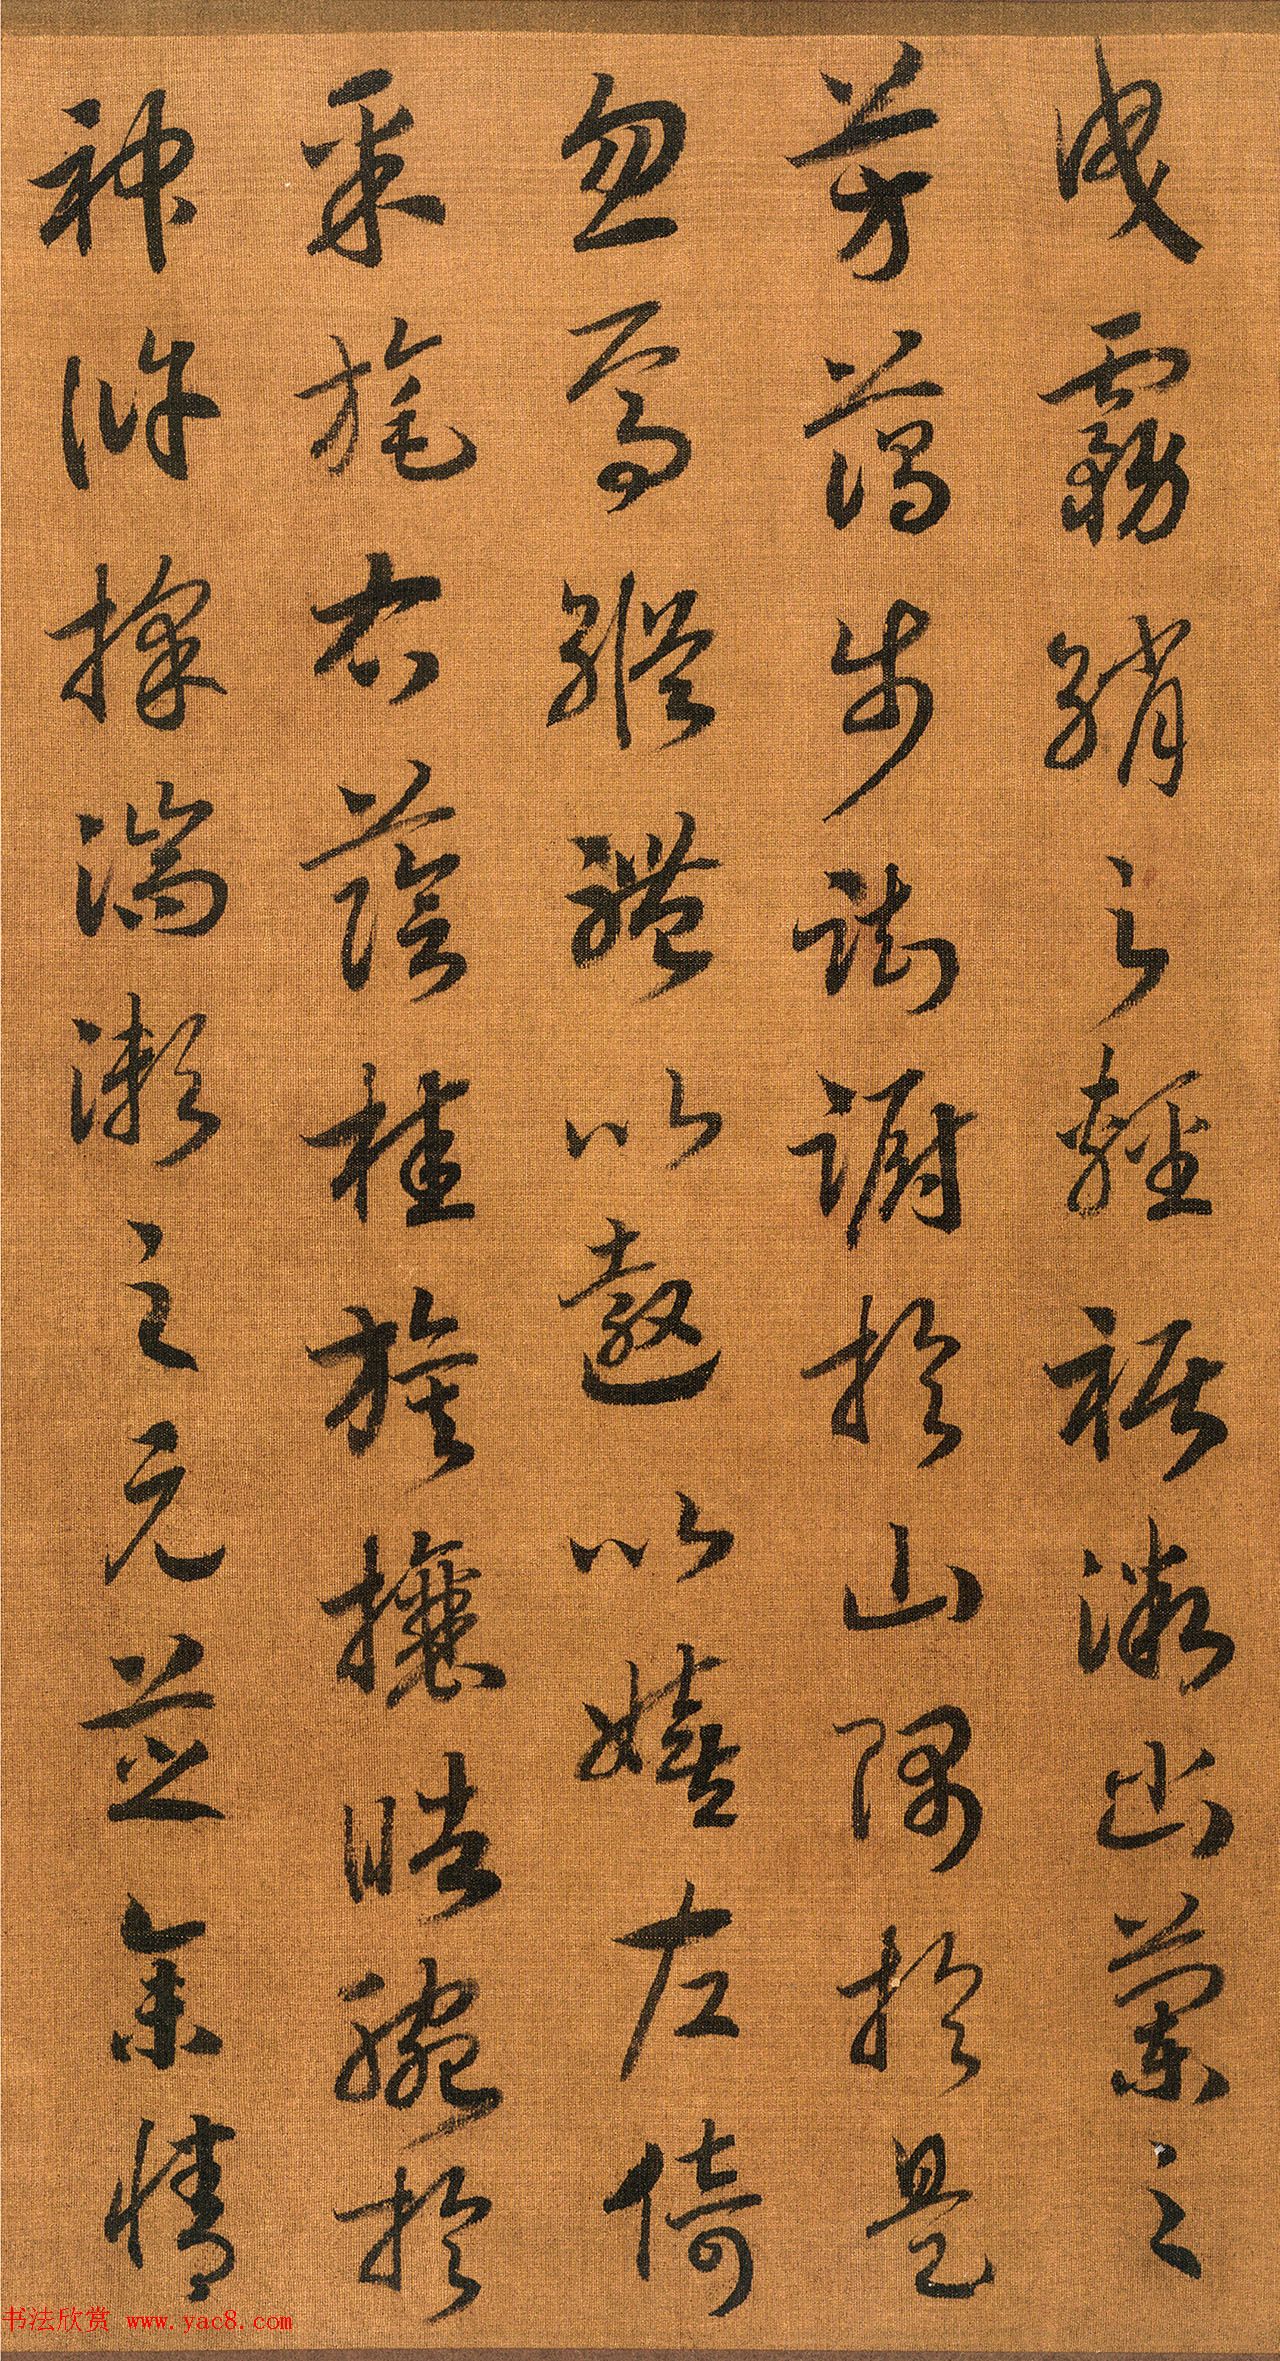 曳霧綃之輕裾微幽蘭之
芳藹步踟躕於山隅於是
忽焉縱體以遨以嬉左倚
采旄右蔭桂旗攘皓腕於
神滸採湍瀨之玄芝余情
书法欣赏 www.yac8.com